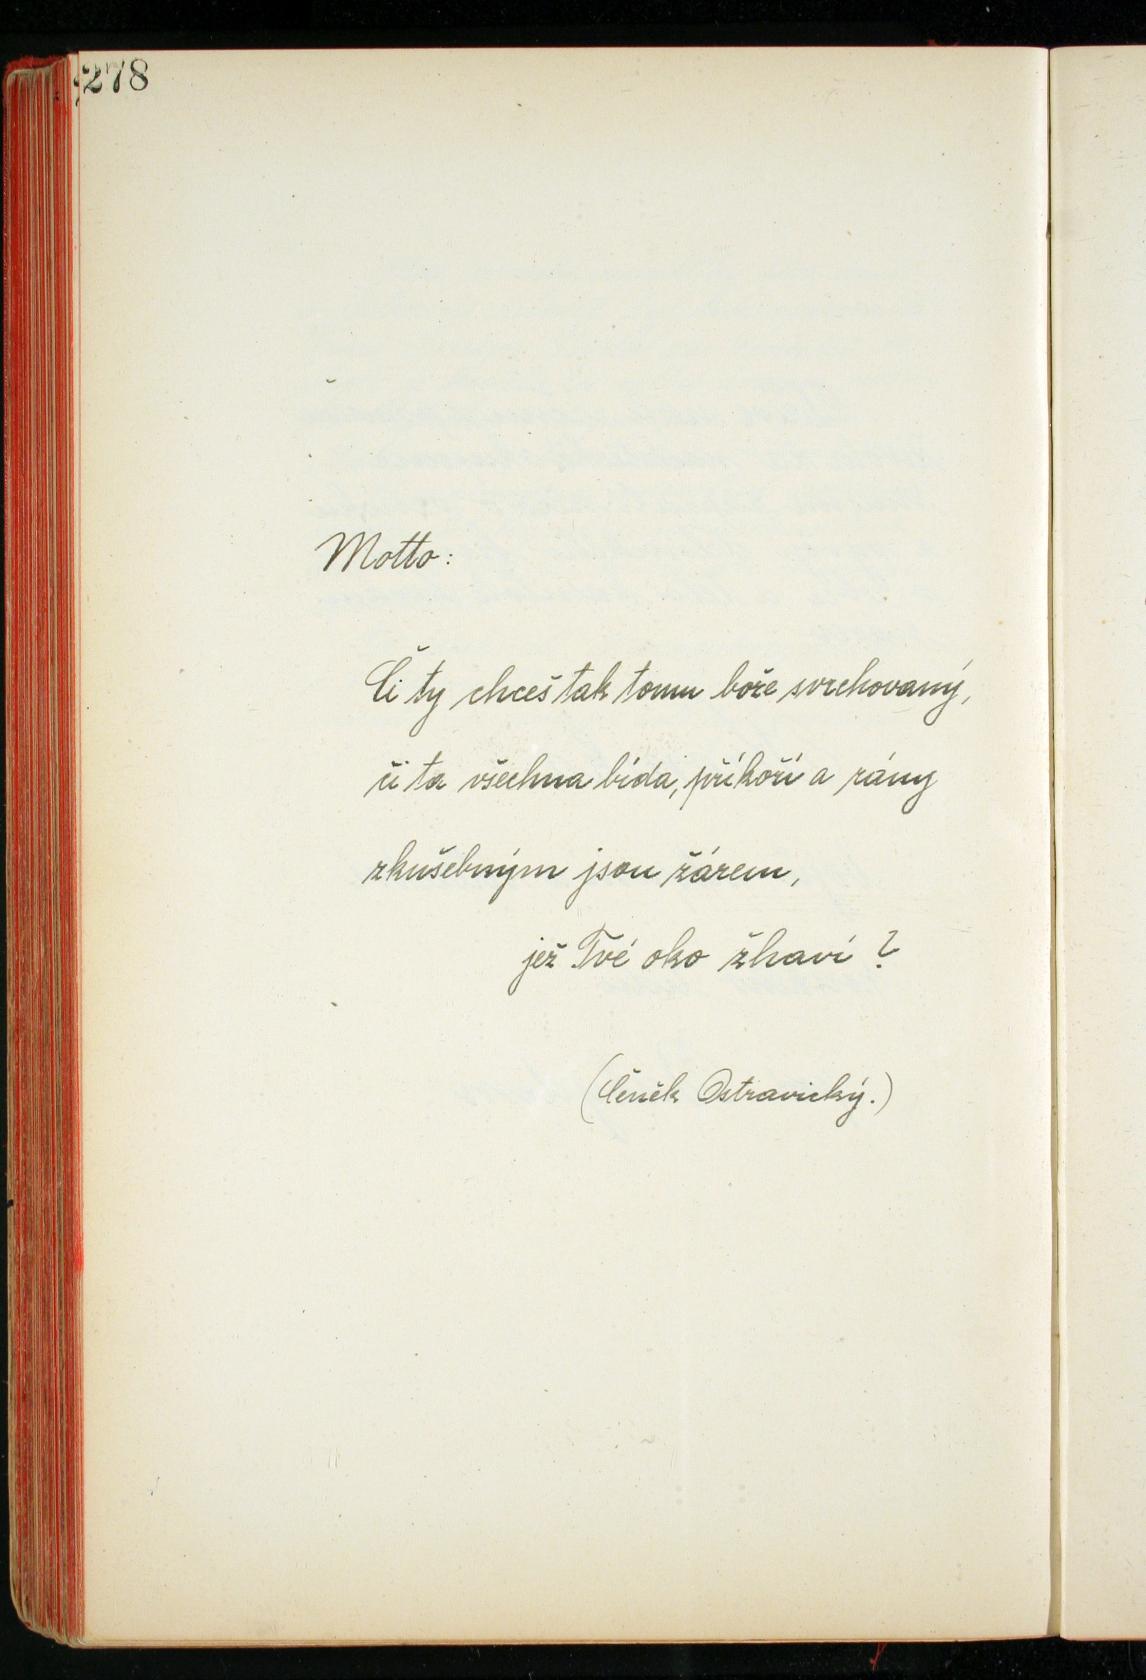 278
Motto:
Či ty chceš tak tomu bože svrchovaný,
či ta všechna bída, příkoří a rány
zkušebným jsou žárem,
jež Tvé oko žhaví ?
(Čeněk Ostravický.)